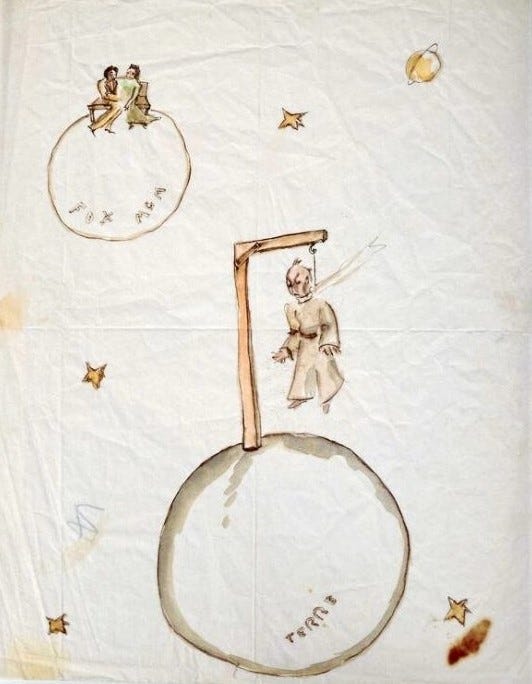 FOX MGM
TERRE